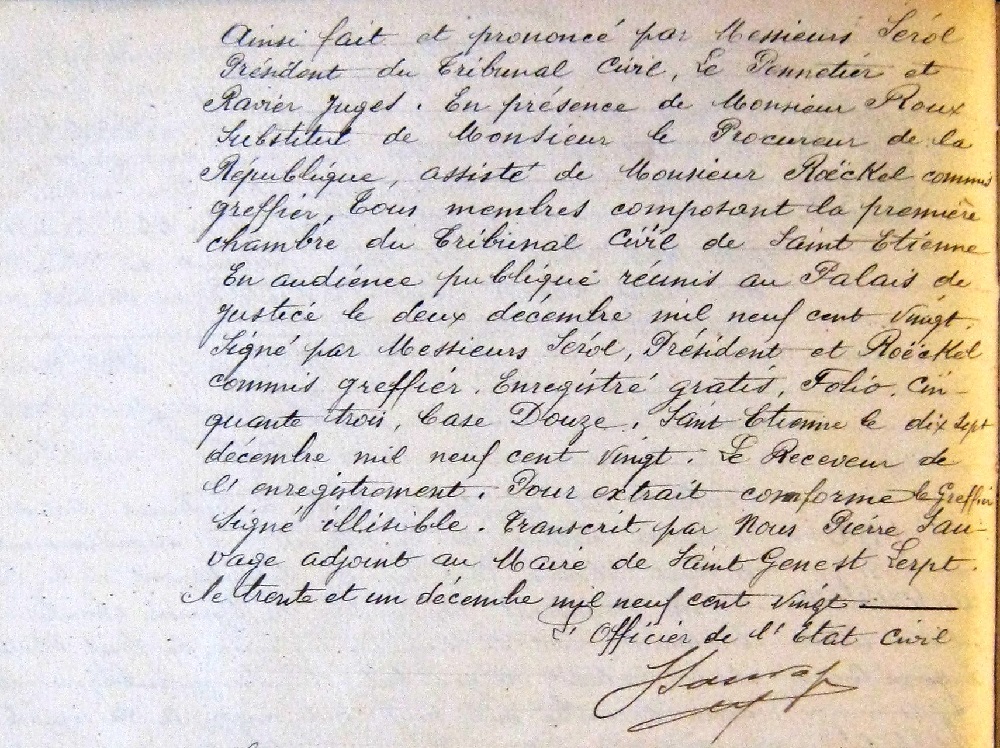 Ainsi fait et prononcé par Messieurs Sérol
Président du Tribunal Civil, Le Pennetier et
Ravier Juges. En présence de Monsieur Roux
Substitut de Monsieur le Procureur de la
République, assisté de Monsieur Roëckel commis
greffier, Tous membres composant la première
chambre du Tribunal Civil de Saint Etienne
En audience publique réunis au Palais de
Justice le deux décembre mil neuf cent vingt.
Signé par Messieurs Sérol, Président et Roëckel
commis greffier. Enregistré gratis, Folio. Cin-
quante trois, Case Douze. Saint Etienne le dix sept
décembre mil neuf cent vingt. Le Receveur de
l'enregistrement. Pour extrait conforme le Greffier
Signé illisible. Transcrit par Nous Pierre Sau-
vage adjoint au Maire de Saint Genest Lerpt.
le trente et un décembre mil neuf cent vingt.
L'Officier de l'Etat civil